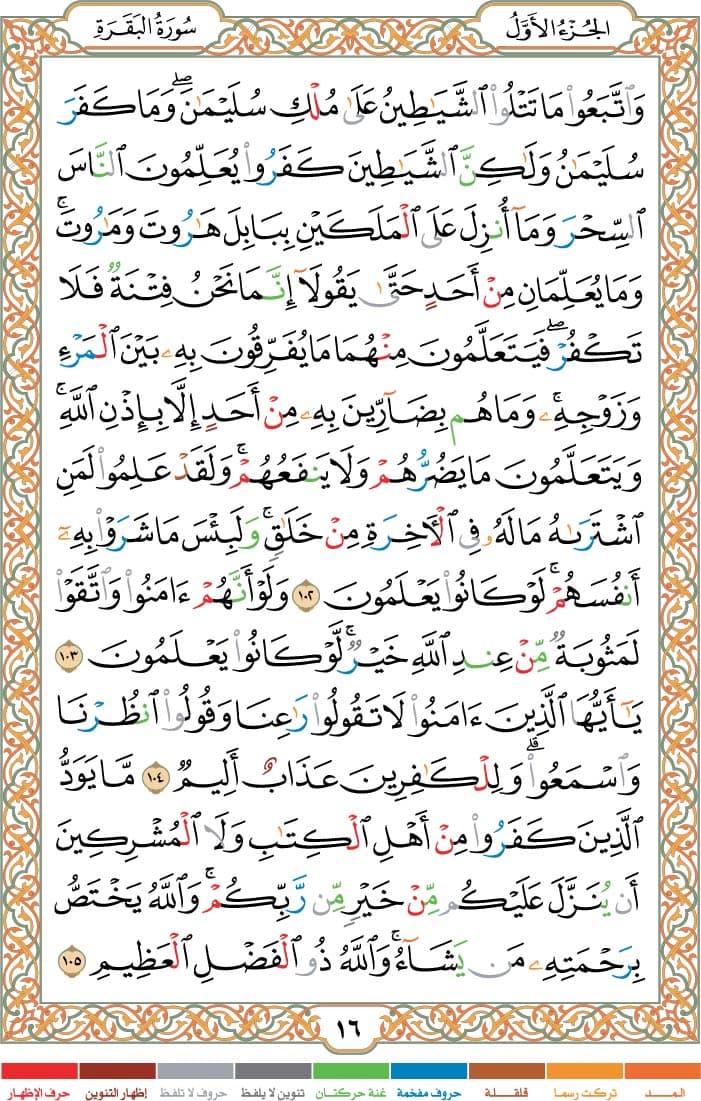 سُورَةُ البَقَرَةِ
الجُزءُ الأَوَّلُ
وَٱتَّبَعُوا۟ مَا تَتْلُوا۟ ٱلشَّيَـٰطِينُ عَلَىٰ مُلْكِ سُلَيْمَـٰنَ ۖ وَمَا كَفَرَ
سُلَيْمَـٰنُ وَلَـٰكِنَّ ٱلشَّيَـٰطِينَ كَفَرُوا۟ يُعَلِّمُونَ ٱلنَّاسَ
ٱلسِّحْرَ وَمَآ أُنزِلَ عَلَى ٱلْمَلَكَيْنِ بِبَابِلَ هَـٰرُوتَ وَمَـٰرُوتَ ۚ
وَمَا يُعَلِّمَانِ مِنْ أَحَدٍ حَتَّىٰ يَقُولَآ إِنَّمَا نَحْنُ فِتْنَةٌ فَلَا
تَكْفُرْ ۖ فَيَتَعَلَّمُونَ مِنْهُمَا مَا يُفَرِّقُونَ بِهِۦ بَيْنَ ٱلْمَرْءِ
وَزَوْجِهِۦ ۚ وَمَا هُم بِضَآرِّينَ بِهِۦ مِنْ أَحَدٍ إِلَّا بِإِذْنِ ٱللَّهِ ۚ
وَيَتَعَلَّمُونَ مَا يَضُرُّهُمْ وَلَا يَنفَعُهُمْ ۚ وَلَقَدْ عَلِمُوا۟ لَمَنِ
ٱشْتَرَىٰهُ مَا لَهُۥ فِى ٱلْـَٔاخِرَةِ مِنْ خَلَـٰقٍ ۚ وَلَبِئْسَ مَا شَرَوْا۟ بِهِۦٓ
أَنفُسَهُمْ ۚ لَوْ كَانُوا۟ يَعْلَمُونَ ١٠٢ وَلَوْ أَنَّهُمْ ءَامَنُوا۟ وَٱتَّقَوْا۟
لَمَثُوبَةٌ مِّنْ عِندِ ٱللَّهِ خَيْرٌ ۖ لَّوْ كَانُوا۟ يَعْلَمُونَ ١٠٣
يَـٰٓأَيُّهَا ٱلَّذِينَ ءَامَنُوا۟ لَا تَقُولُوا۟ رَٰعِنَا وَقُولُوا۟ ٱنظُرْنَا
وَٱسْمَعُوا۟ ۗ وَلِلْكَـٰفِرِينَ عَذَابٌ أَلِيمٌ ١٠٤ مَّا يَوَدُّ
ٱلَّذِينَ كَفَرُوا۟ مِنْ أَهْلِ ٱلْكِتَـٰبِ وَلَا ٱلْمُشْرِكِينَ
أَن يُنَزَّلَ عَلَيْكُم مِّنْ خَيْرٍ مِّن رَّبِّكُمْ ۗ وَٱللَّهُ يَخْتَصُّ
بِرَحْمَتِهِۦ مَن يَشَآءُ ۚ وَٱللَّهُ ذُو ٱلْفَضْلِ ٱلْعَظِيمِ ١٠٥
١٦
المـــد
تركت رسما
قلقـلة
حروف مفخمة
غنة حركتان
تنوين لا يلفظ
حروف لا تلفظ
إظهار التنوين
حرف الإظهار